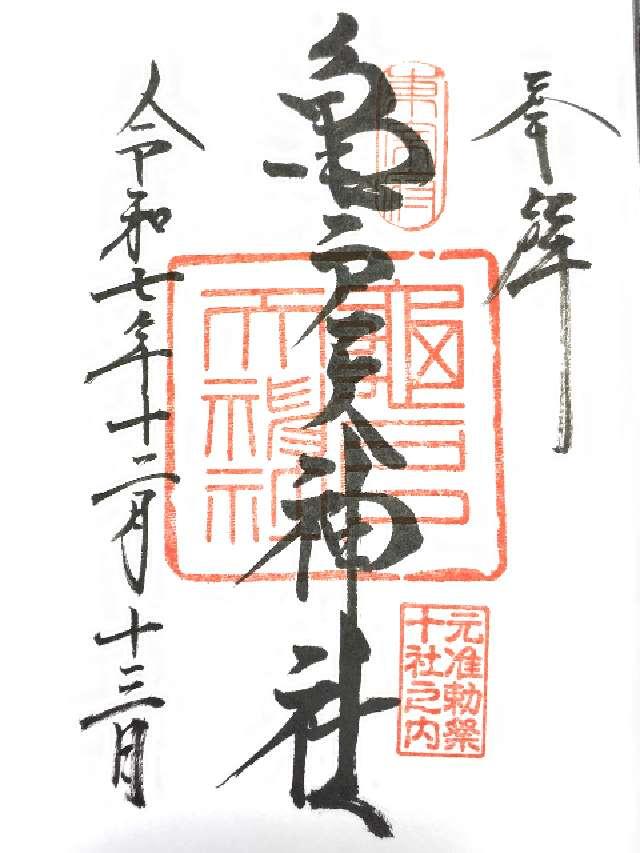 奉拝
東宰府
亀戸天神社
亀戸天神社
元准勅祭
十社之内
令和七年十二月十三日